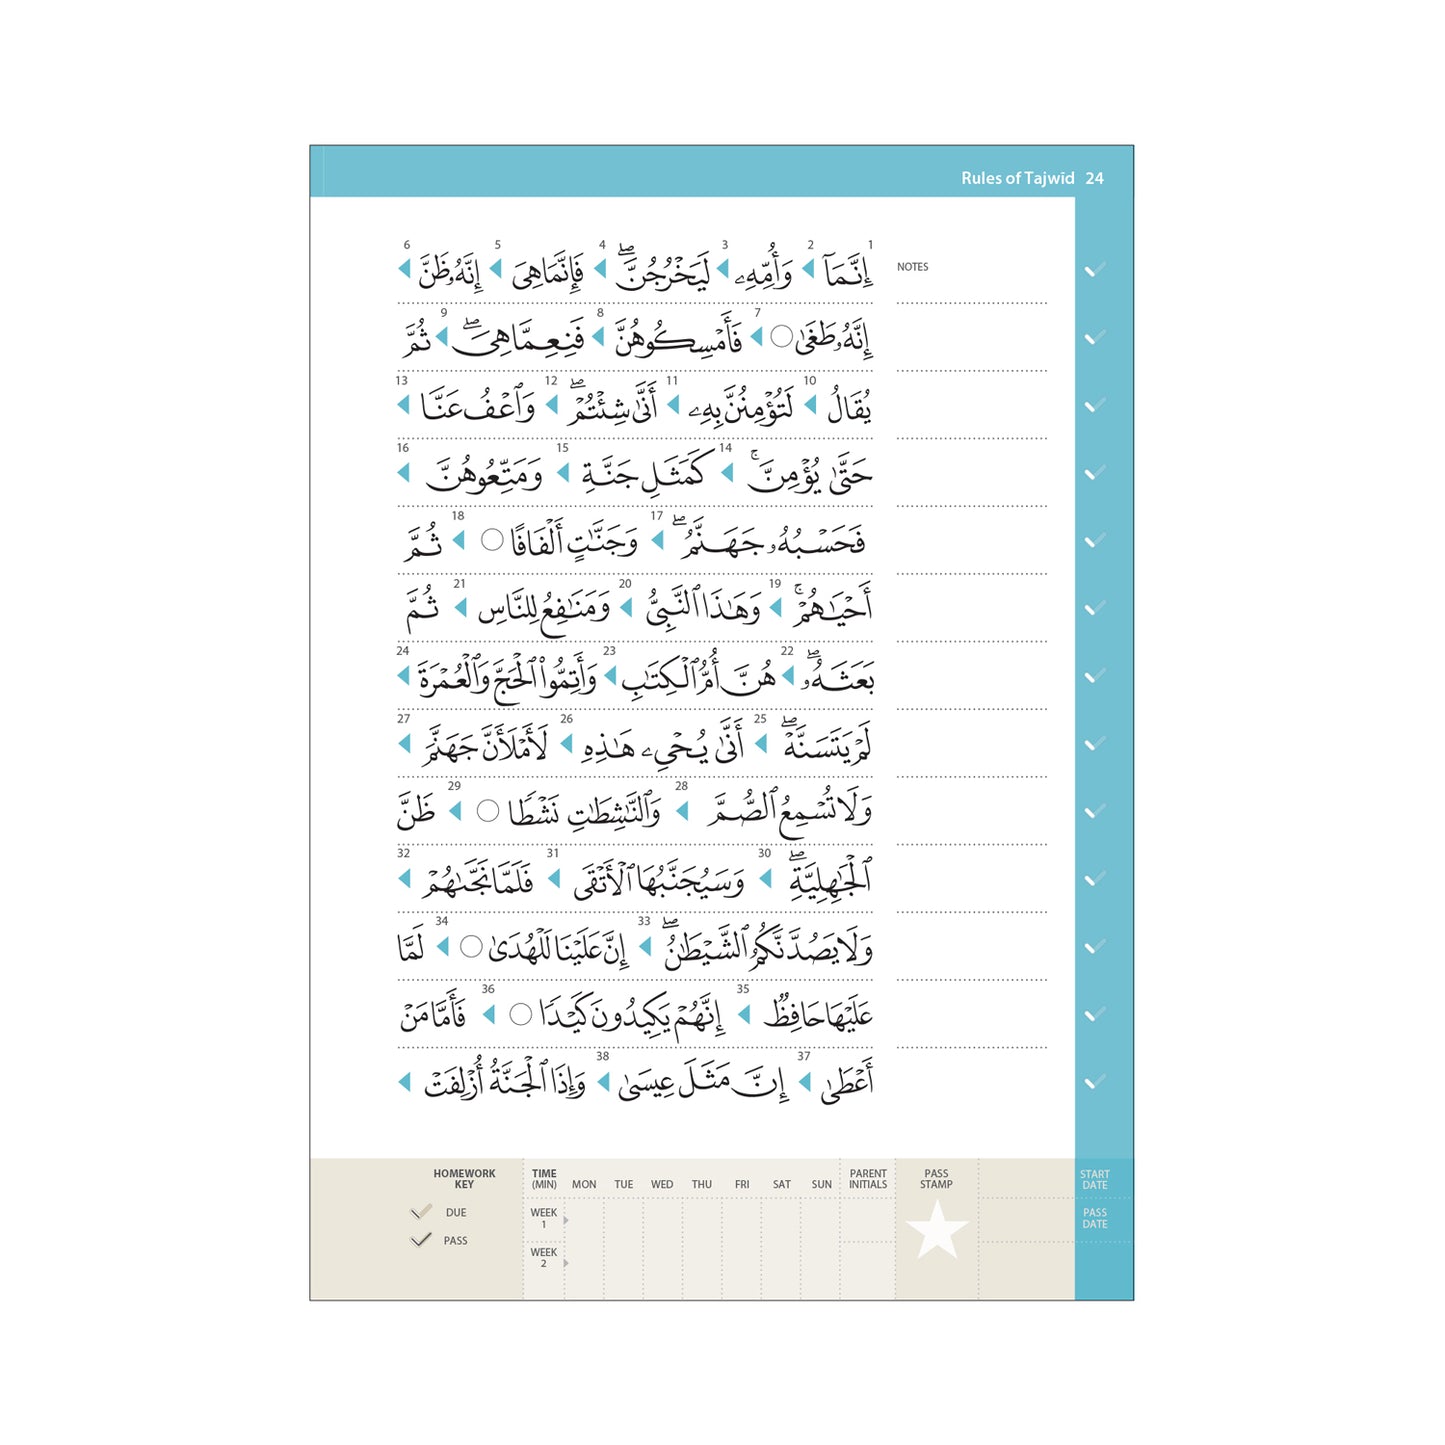 Rules of Tajwīd 24
1 2 3 4 5 6
إِنَّمَآ ◀ وَأُمِّهِۦ ◀ لَيَخْرُجُنَّۖ ◀ فَإِنَّمَا هِىَ ◀ إِنَّهُۥ ظَنَّ ◀
NOTES
7 8 9
إِنَّهُۥ طَغَىٰ ○ ◀ فَأَمْسِكُوهُنَّ ◀ فَنِعِمَّا هِىَۖ ◀ ثُمَّ
10 11 12 13
يُقَالُ ◀ لَتُؤْمِنُنَّ بِهِۦ ◀ أَنَّىٰ شِئْتُمْۖ ◀ وَٱعْفُ عَنَّا ◀
14 15 16
حَتَّىٰ يُؤْمِنَّۚ ◀ كَمَثَلِ جَنَّةِ ◀ وَمَتِّعُوهُنَّ ◀
17 18
فَحَسْبُهُۥ جَهَنَّمُۖ ◀ وَجَنَّـٰتٍ أَلْفَافًا ○ ◀ ثُمَّ
19 20 21
أَحْيَـٰهُمْۚ ◀ وَهَـٰذَا ٱلنَّبِىُّ ◀ وَمَنَـٰفِعُ لِلنَّاسِ ◀ ثُمَّ
22 23 24
بَعَثَهُۥۖ ◀ هُنَّ أُمُّ ٱلْكِتَـٰبِ ◀ وَأَتِمُّوا۟ ٱلْحَجَّ وَٱلْعُمْرَةَ ◀
25 26 27
لَمْ يَتَسَنَّهْۖ ◀ أَنَّىٰ يُحْىِۦ هَـٰذِهِ ◀ لَأَمْلَأَنَّ جَهَنَّمَ ◀
28 29
وَلَا تُسْمِعُ ٱلصُّمَّ ◀ وَٱلنَّـٰشِطَـٰتِ نَشْطًا ○ ◀ ظَنَّ
30 31 32
ٱلْجَـٰهِلِيَّةِۖ ◀ وَسَيُجَنَّبُهَا ٱلْأَتْقَى ◀ فَلَمَّا نَجَّىٰهُمْ ◀
33 34
وَلَا يَصُدَّنَّكُمُ ٱلشَّيْطَـٰنُۖ ◀ إِنَّ عَلَيْنَا لَلْهُدَىٰ ○ ◀ لَمَّا
35 36
عَلَيْهَا حَافِظٌ ◀ إِنَّهُمْ يَكِيدُونَ كَيْدًا ○ ◀ فَأَمَّا مَنْ
37 38
أَعْطَىٰ ◀ إِنَّ مَثَلَ عِيسَىٰ ◀ وَإِذَا ٱلْجَنَّةُ أُزْلِفَتْ ◀
HOMEWORK KEY
DUE
PASS
TIME (MIN) MON TUE WED THU FRI SAT SUN PARENT INITIALS PASS STAMP START DATE
WEEK 1 PASS DATE
WEEK 2